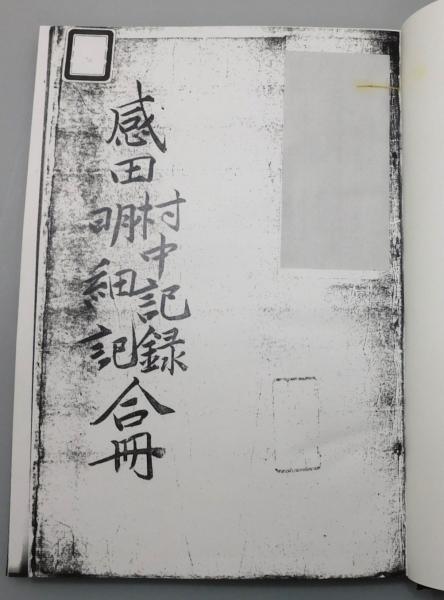 感田
村中記録
明細記
合冊